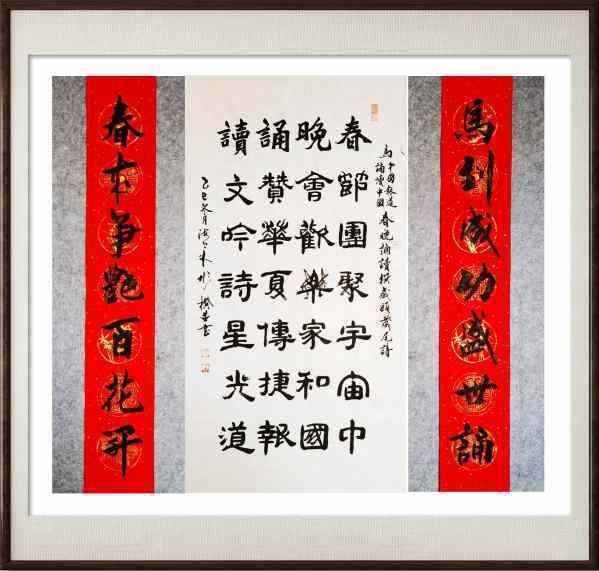 馬到成功盛世誦
春晚誦讀撰藏頭藏尾詩
春節團聚宇宙中
晚會歡樂家和國
誦贊華夏傳捷報
讀文吟詩星光道
乙巳冬月
春来爭艷百花开